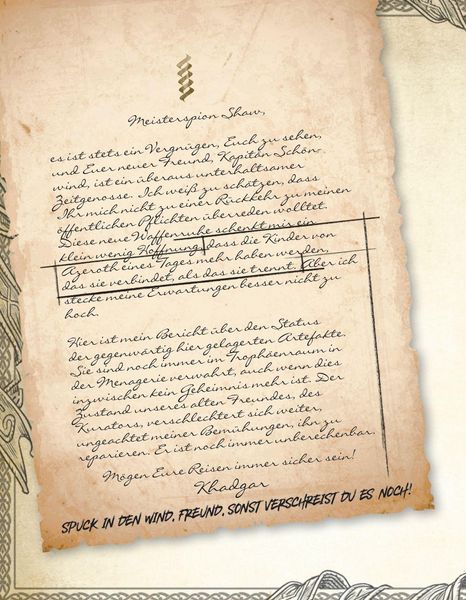 Meisterspion Shaw,
es ist stets ein Vergnügen, Euch zu sehen,
und Euer neuer Freund, Kapitän Schön-
wind, ist ein überaus unterhaltsamer
Zeitgenosse. Ich weiß zu schätzen, dass
Ihr mich nicht zu einer Rückkehr zu meinen
öffentlichen Pflichten überreden wolltet.
Diese neue Waffenruhe schenkt mir ein
klein wenig Hoffnung, dass die Kinder von
Azeroth eines Tages mehr haben werden,
das sie verbindet, als das sie trennt. Aber ich
stecke meine Erwartungen besser nicht zu
hoch.
Hier ist mein Bericht über den Status
der gegenwärtig hier gelagerten Artefakte.
Sie sind noch immer im Trophäenraum in
der Menagerie verwahrt, auch wenn dies
inzwischen kein Geheimnis mehr ist. Der
Zustand unseres alten Freundes, des
Kurators, verschlechtert sich weiter,
ungeachtet meiner Bemühungen, ihn zu
reparieren. Er ist noch immer unberechenbar.
Mögen Eure Reisen immer sicher sein!
Khadgar
SPUCK IN DEN WIND, FREUND, SONST VERSCHREIST DU ES NOCH!